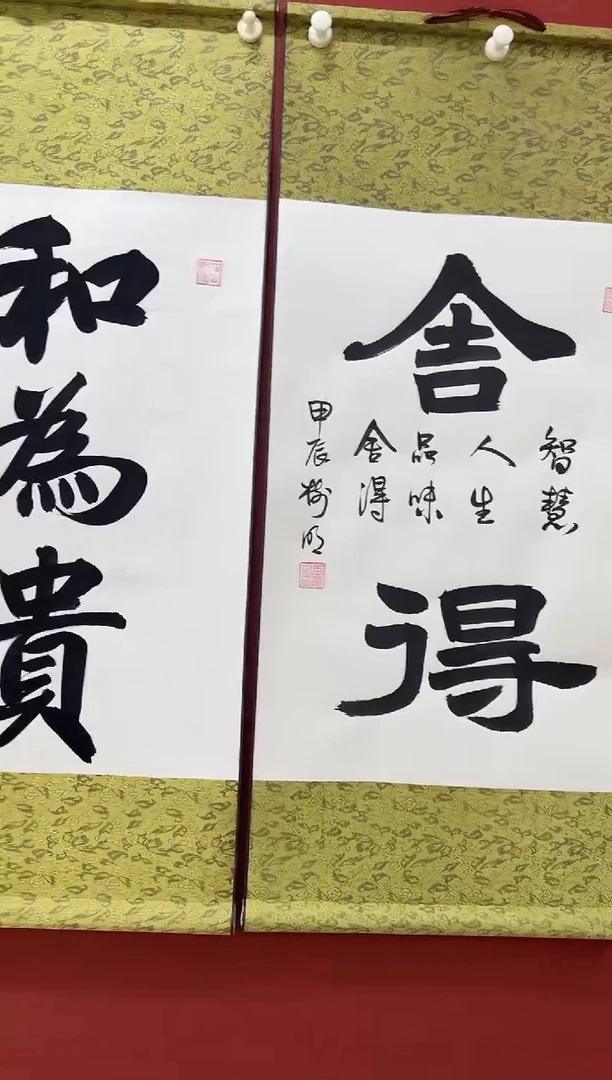 舍得
智慧
人生
品味
舍得
甲辰 樹明
和為貴